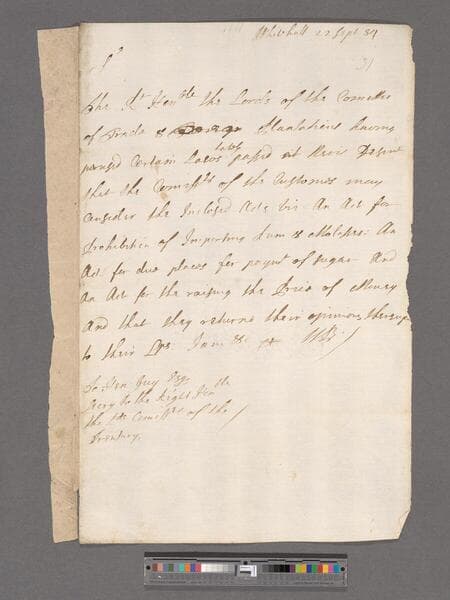 Whitehall 22 Sept 84
31
Sr
The Rt Honble the Lords of the Comittee
of Trade & Plantations having
perused Certain Laws lately passed at Nevis Desire
that the Comissrs of the Customes may
Consider the Inclosed Acts viz An Act for
Prohibition of Importing Rum & Molosses: An
Act for due places for paymt of sugar And
An Act for the raising the Price of Money
And that they returne their opinions thereupon
to their Lps I am &c
To Hen Guy Esqr
Secry to the Right Honble
the Lds Comissrs of the
Treasury.